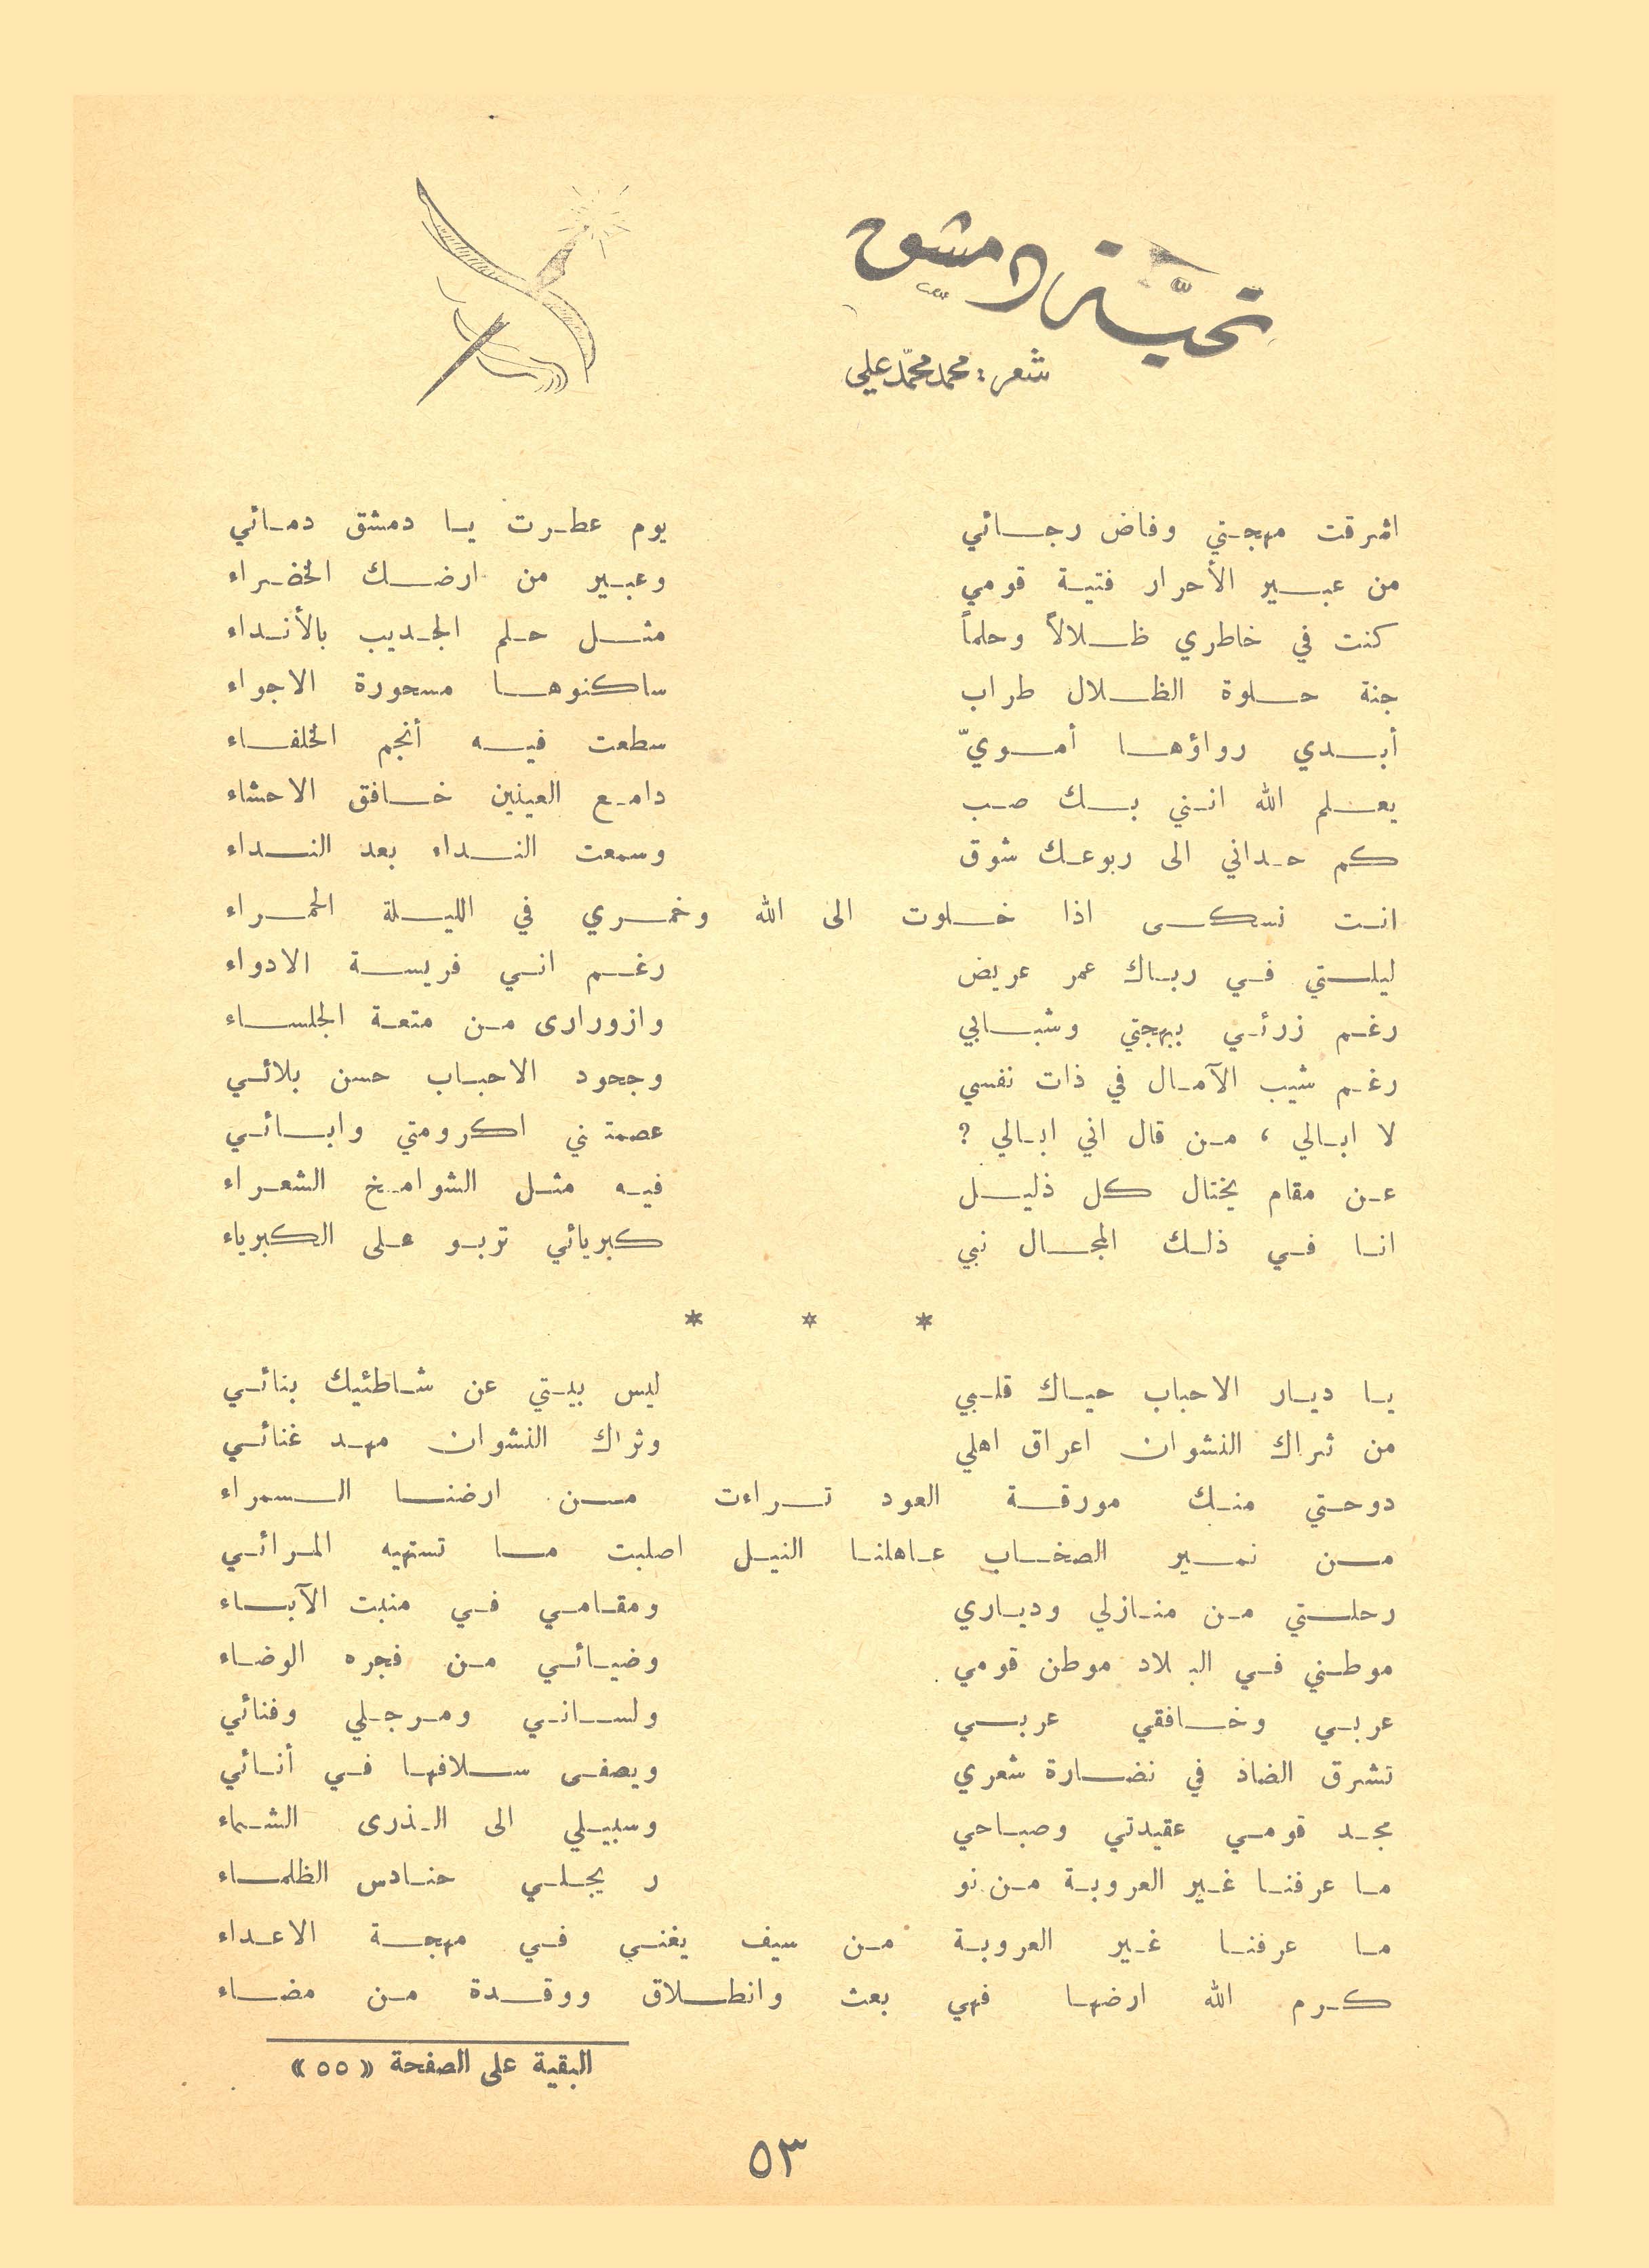 تحيّة دمشق
شعر : محمد محمّد علي
اشرقت مهجتي وفاض رجائي يوم عطرت يا دمشق دمائي
من عبير الأحرار فتية قومي وعبير من ارضك الخضراء
كنت في خاطري ظلالاً وحلماً مثل حلم الجديب بالأنداء
جنة حلوة الظلال طراب ساكنوها مسحورة الاجواء
أبدي رواؤها أمويّ سطعت فيه أنجم الخلفاء
يعلم الله انني بك صب دامع العينين خافق الاحشاء
كم حداني الى ربوعك شوق وسمعت النداء بعد النداء
انت نسكى اذا خلوت الى الله وخمري في الليلة الحمراء
ليلتي في رباك عمر عريض رغم اني فريسة الادواء
رغم زرئي ببهجتي وشبابي وازورارى من متعة الجلساء
رغم شيب الآمال في ذات نفسي وجحود الاحباب حسن بلائي
لا ابالي ، من قال اني ابالي ? عصمتني اكرومتي وابائي
عن مقام يختال كل ذليل فيه مثل الشوامخ الشعراء
انا في ذلك المجال نبي كبريائي تربو على الكبرياء
* * *
يا ديار الاحباب حياك قلبي ليس بيتي عن شاطئيك بنائي
من ثراك النشوان اعراق اهلي وثراك النشوان مهد غنائي
دوحتي منك مورقة العود تراءت من ارضنا السمراء
من نمير الصخاب عاهلنا النيل اصلبت ما تستهيه المرائي
رحلتي من منازلي ودياري ومقامي في منبت الآباء
موطني في البلاد موطن قومي وضيائي من فجره الوضاء
عربي وخافقي عربي ولساني ومرجلي وفنائي
تشرق الضاذ في نضارة شعري ويصفى سلافها في أنائي
مجد قومي عقيدتي وصباحي وسبيلي الى الذرى الشماء
ما عرفنا غير العروبة من نو ر يجلي حنادس الظلماء
ما عرفنا غير العروبة من سيف يغني في مهجة الاعداء
كرم الله ارضها فهي بعث وانطلاق ووقدة من مضاء
البقية على الصفحة «٥٥»
٥٣